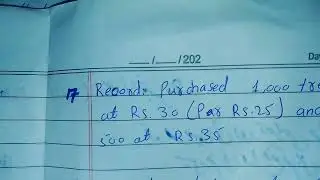 __/__/202
Da
17 Record: Purchased 1,000 tre
at RS.30 (Par RS.25) and
500 at RS.35